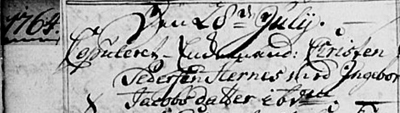 1764. Den 28de Julij.
Copuleret Eenemand: Christen
Pedersen Sternes med Ingebor
Jacobsdatter